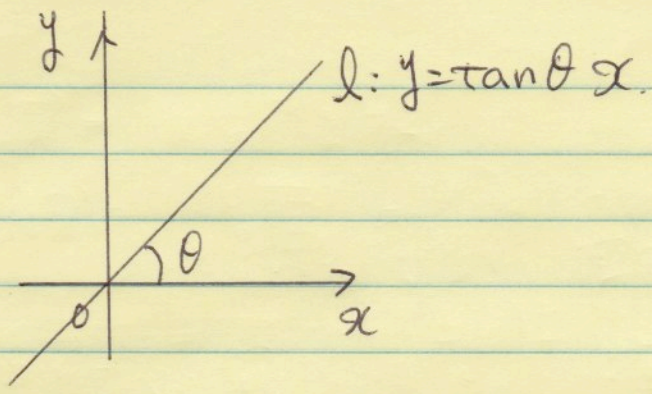 y
l: y=tanθ x.
θ
O
x